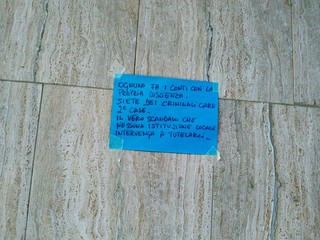 OGNUNO FA I CONTI CON LA
PROPRIA COSCIENZA.
SIETE DEI CRIMINALI CARO
2ª CASE.
IL VERO SCANDALO CHE
NESSUNA ISTITUZIONE LOCALE
INTERVENGA A TUTELARCI